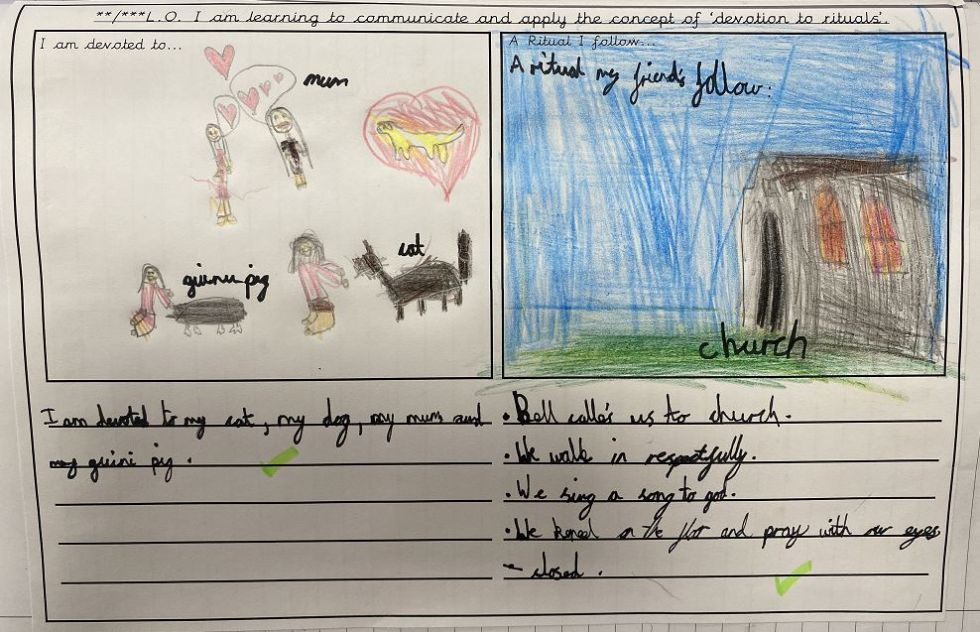 **/***L.O. I am learning to communicate and apply the concept of 'devotion to rituals'.
I am devoted to...
mum
guinu pig
cat
I am devoted to my cat, my dog, my mum and
my guini pig.
A Ritual I follow...
A ritual my friend's follow:
church
• Bell calle's us to church.
• We walk in respectfully.
• We sing a song to god.
• We kneel on the flor and pray with our eyes
closed.